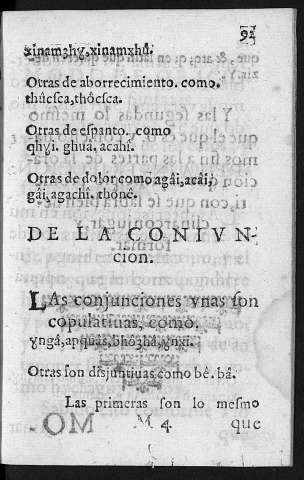 92
xinamꝫhɣ, xinamxhû.
Otras de aborrecimiento. como.
thûesca, thôcsca.
Otras de espanto. como
qhɣi. ghuâ. acahî.
Otras de dolor como agâi, acâi,
gâi, agachî. thônê.
DE LA CONIVN-
cion.
LAs conjunciones vnas son
copulatiuas, como.
ɣngâ, apquas, bhoꝫhâ, ɣnxi.
Otras son disjuntiuas como bê. bâ.
Las primeras son lo mesmo
M 4 que